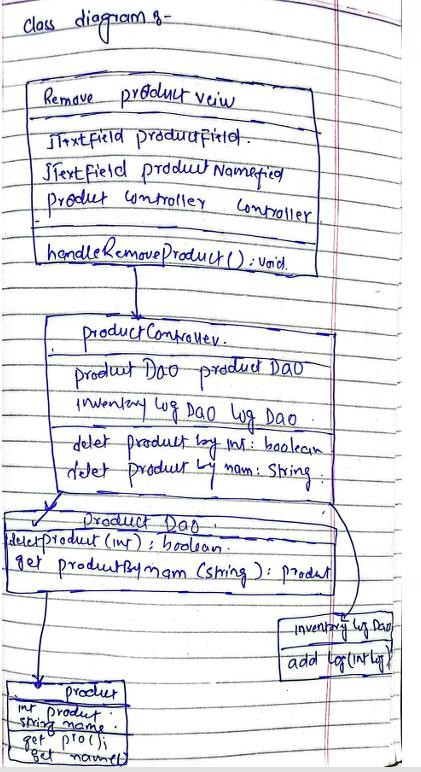 Class diagram :-
Remove product veiw
JTextField productField.
JTextField productNamefied
Product Controller Controller
handleRemoveProduct() : void.
productController.
product DaO product DaO
inventory log DaO log DaO.
delet product by int: boolean
delet product by nam: String.
product Dao.
deletproduct (int) : boolean.
get productBynam (String) : product
inventory log Dao
add log(int log)
product
int product.
string name.
get pro();
get name()